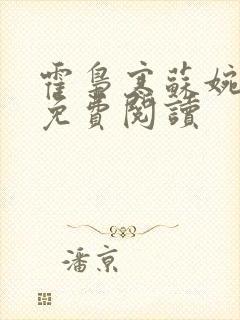 霍梟寒蘇婉
免費閱讀
潘京